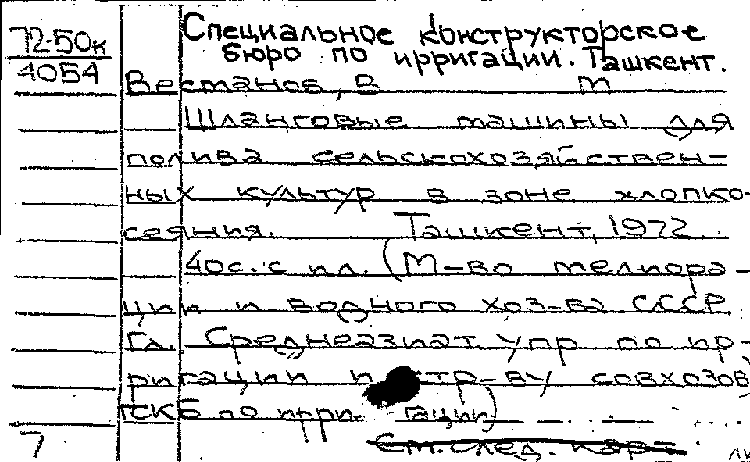 72-50к
4054
Специальное конструкторское
бюро по ирригации. Ташкент.
Вестанов, В М
Шланговые машины для
полива сельскохозяйствен-
ных культур в зоне хлопко-
сеяния. Ташкент, 1972.
40с. с ил. (М-во мелиора-
ции и водного хоз-ва СССР
Гл. Среднеазиат. упр по ир-
ригации и стр-ву совхозов
ГСКБ по ирригации)
См. след. кар-
7